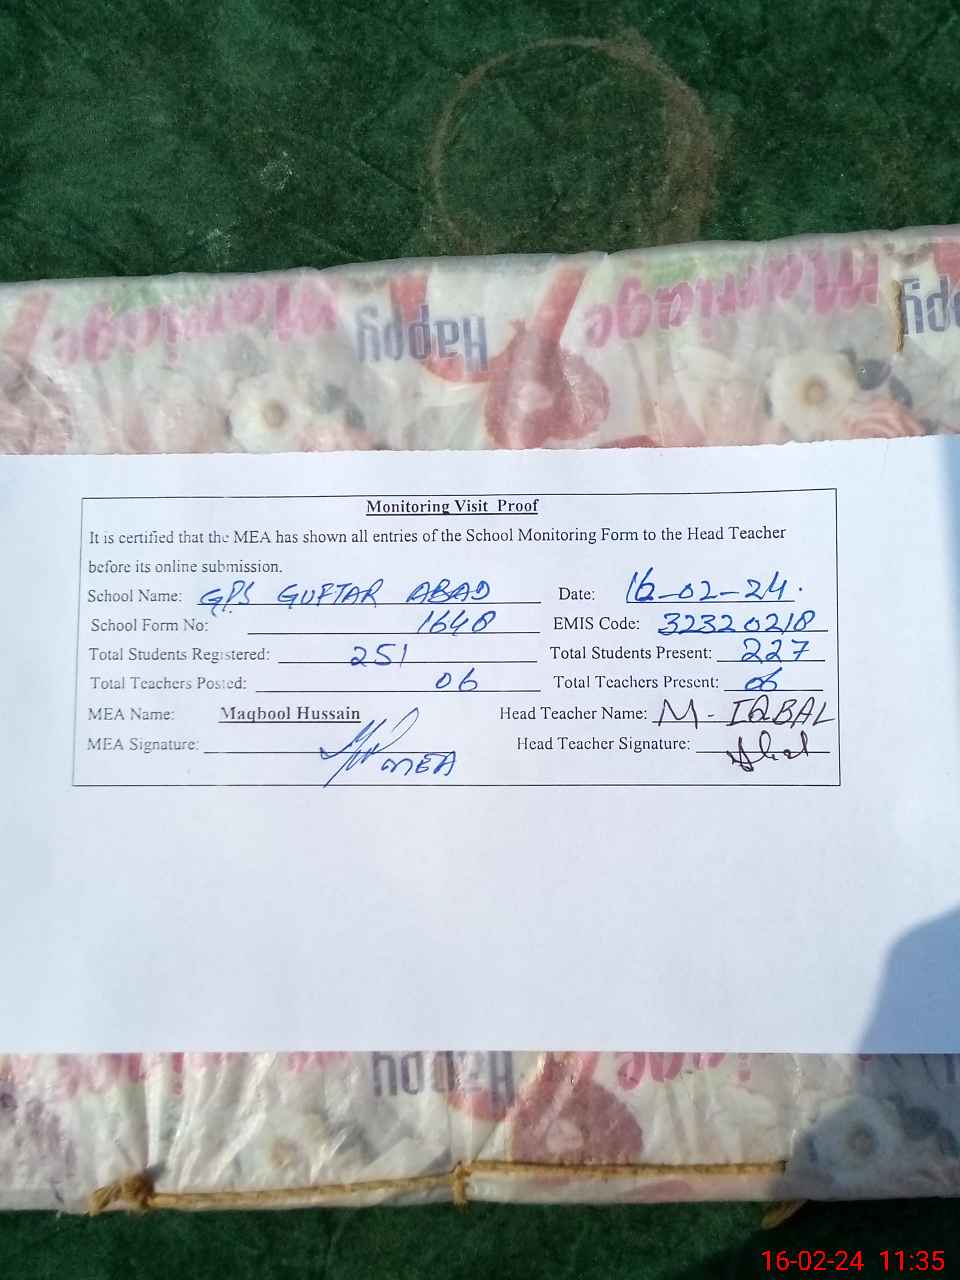 Marriage Happy Marriage Happy
Monitoring Visit Proof
It is certified that the MEA has shown all entries of the School Monitoring Form to the Head Teacher
before its online submission.
School Name: GPS GUFTAR ABAD Date: 16-02-24.
School Form No: 1648 EMIS Code: 32320218
Total Students Registered: 251 Total Students Present: 227
Total Teachers Posted: 06 Total Teachers Present: 06
MEA Name: Maqbool Hussain Head Teacher Name: M-IQBAL
MEA Signature: MEA Head Teacher Signature:
Happy
16-02-24 11:35